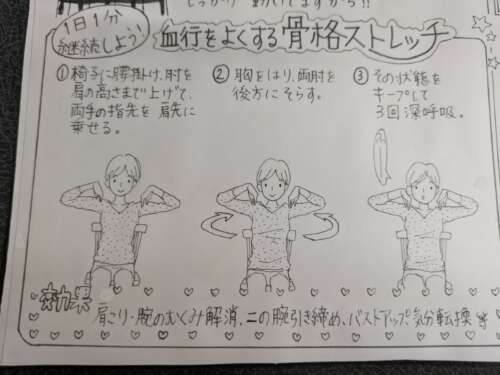 1日1分
継続しよう!
血行をよくする骨格ストレッチ
① 椅子に腰掛け、肘を
肩の高さまで上げて、
両手の指先を肩先に
乗せる。
② 胸をはり、両肘を
後方にそらす。
③ その状態を
キープして
3回深呼吸。
効果
肩こり・腕のむくみ解消、二の腕引き締め、バストアップ、気分転換 等